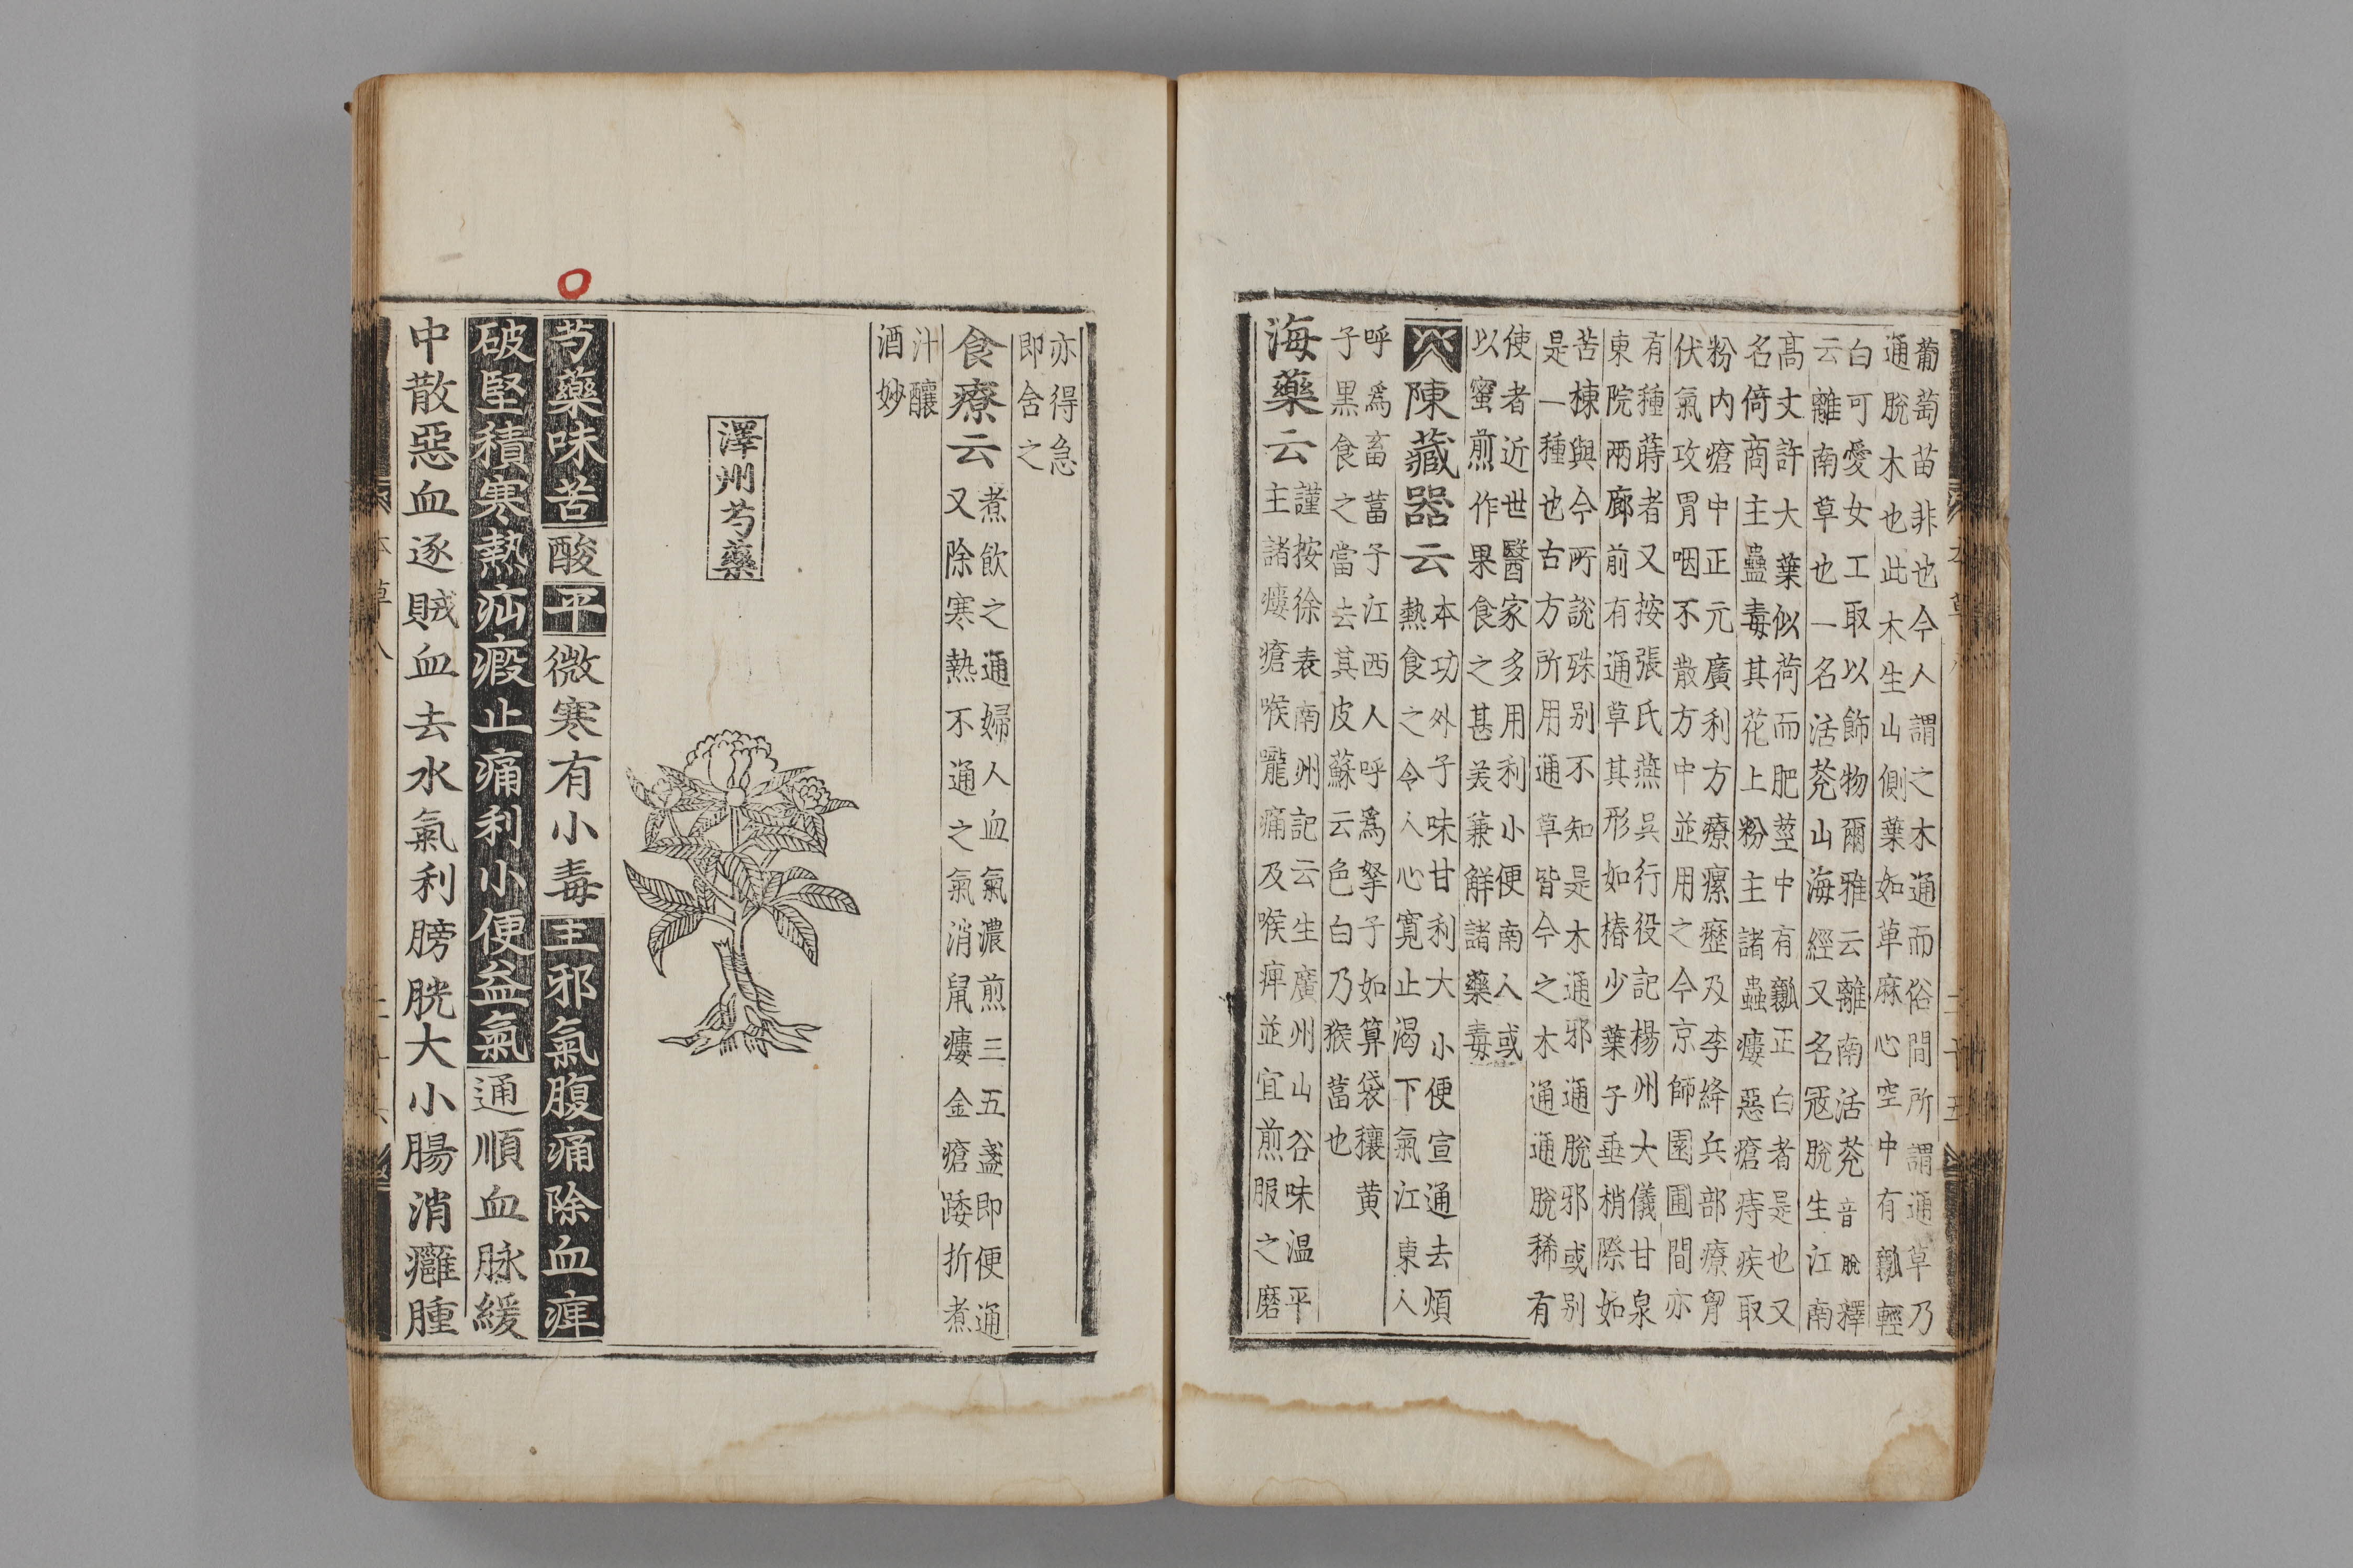 葡萄苗非也今人謂之木通而俗間所謂通草乃
通脫木也此木生山側葉如萆麻心空中有瓤輕
白可愛女工取以飾物爾雅云離南活莌音脫釋
云離南草也一名活莌山海經又名寇脫生江南
高丈許大葉似荷而肥莖中有瓤正白者是也又
名倚商主蠱毒其花上粉主諸蟲瘻惡瘡痔疾取
粉内瘡中正元廣利方療瘰癧及李絳兵部療胷
伏氣攻胃咽不散方中並用之今京師園圃間亦
有種蒔者又按張氏燕吳行役記楊州大儀甘泉
東院兩廊前有通草其形如椿少葉子垂梢際如
苦楝與今所說殊别不知是木通邪通脫邪或别
是一種也古方所用通草皆今之木通通脫稀有
使者近世醫家多用利小便南人或
以蜜煎作果食之甚美兼解諸藥毒
陳藏器云
本功外子味甘利大小便宣通去煩
熱食之令人心寬止渴下氣江東人
呼爲畜葍子江西人呼爲拏子如算袋穰黄
子黒食之當去其皮蘇云色白乃猴葍也
海藥云
謹按徐表南州記云生廣州山谷味温平
主諸瘻瘡喉嚨痛及喉痹並宜煎服之磨
亦得急
即含之
食療云
煮飲之通婦人血氣濃煎三五盞即便通
又除寒熱不通之氣消鼠瘻金瘡踒折煮
汁釀
酒妙
澤州芍藥
芍藥味苦酸平微寒有小毒主邪氣腹痛除血痺
破堅積寒熱疝瘕止痛利小便益氣通順血脉緩
中散惡血逐賊血去水氣利膀胱大小腸消癰腫